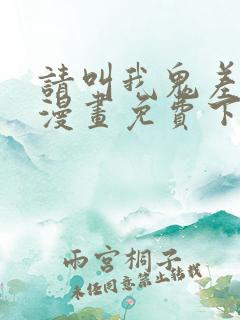 請叫我鬼差
漫畫免費下
雨宮桐子
未經同意禁止轉載